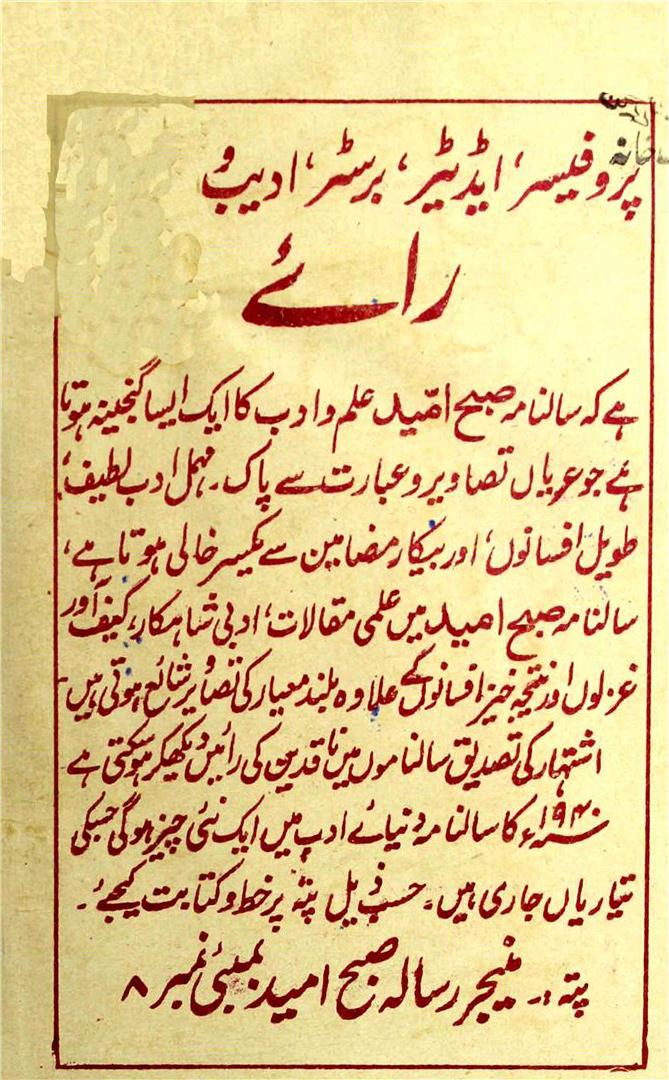 پروفیسر، ایڈیٹر، برسٹر، ادیب و
رائے
ہے کہ سالنامہ صبح امّید علم و ادب کا ایک ایسا گنجینہ ہوتا
ہے جو عریاں تصاویر و عبارت سے پاک۔ مہمل ادب لطیف،
طویل افسانوں، اور بیکار مضامین سے یکسر خالی ہوتا ہے،
سالنامہ صبح امید میں علمی مقالات، ادبی شاہکار، کیف آور
غزلوں اور نتیجہ خیز افسانوں کے علاوہ بلند معیار کی تصاویر شائع ہوتی ہیں
اشتہار کی تصدیق سالناموں میں ناقدین کی رائیں دیکھکر ہو سکتی ہے
سنہ ۱۹۴۰ء کا سالنامہ دنیائے ادب میں ایک نئی چیز ہوگی جسکی
تیاریاں جاری ہیں۔ حسب ذیل پتہ پر خط و کتابت کیجئے۔
پتہ :۔ منیجر رسالہ صبح امید بمبئی نمبر ۸